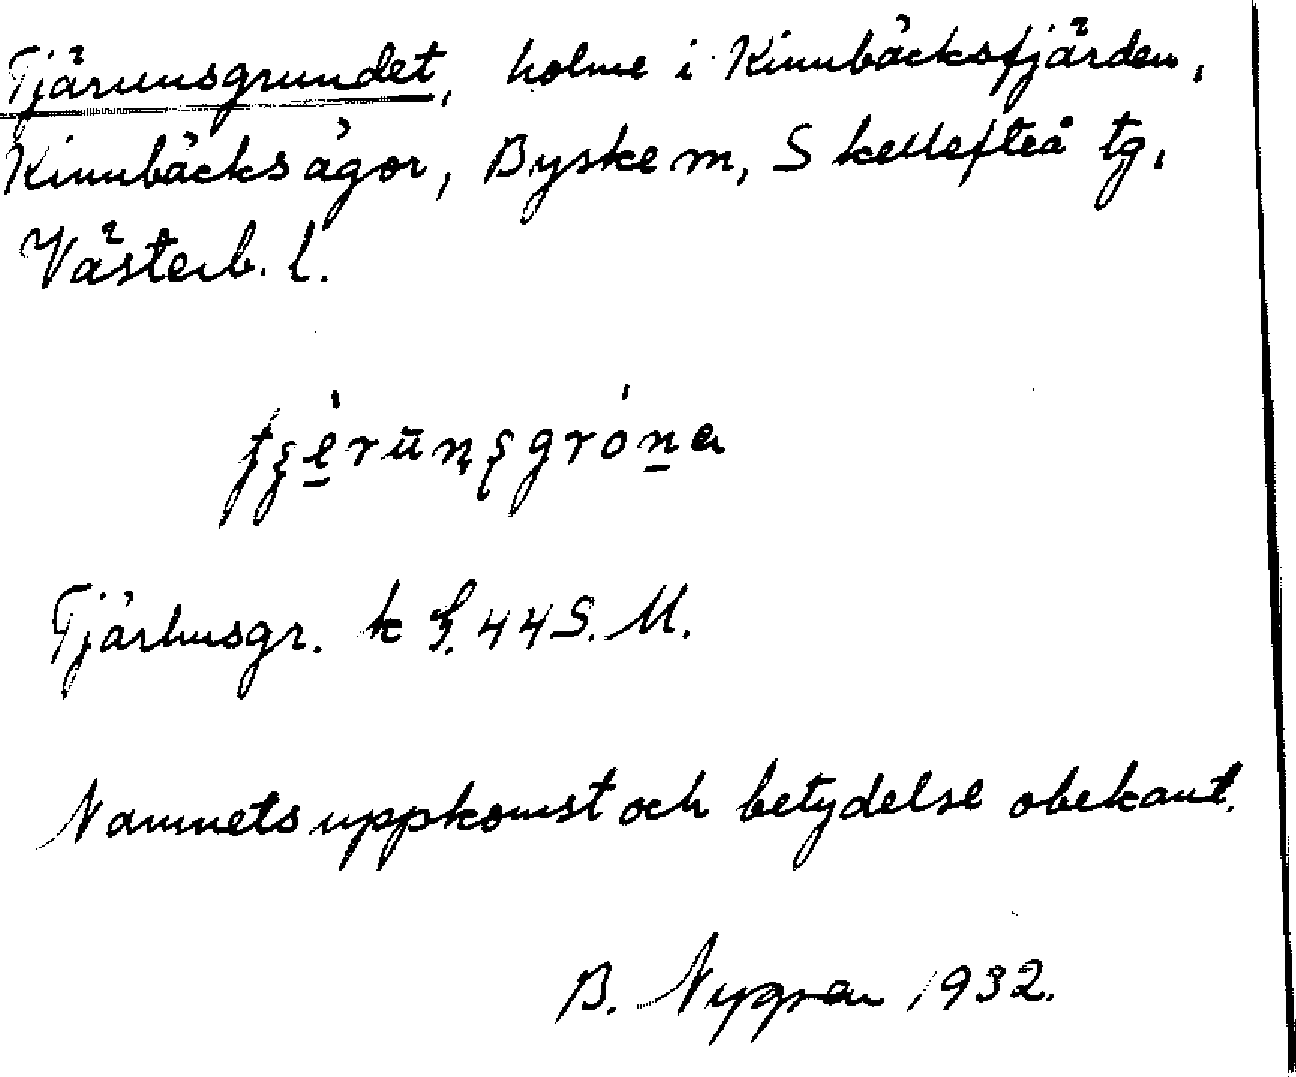 Tjärunsgrundet, holme i Kinnbäcksfjärden,
Kinnbäcks ägor, Byske m, Skellefteå tg,
Västerb. l.
Tjärhusgr. k S. 44 S. M.
Namnets uppkomst och betydelse obekant.
B. Nygren 1932.